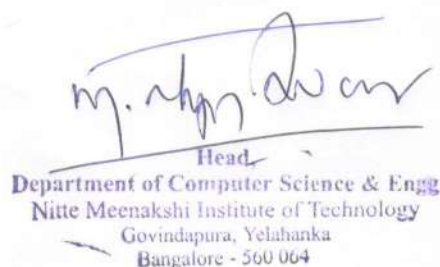 Head
Department of Computer Science & Engg
Nitte Meenakshi Institute of Technology
Govindapura, Yelahanka
Bangalore - 560 064